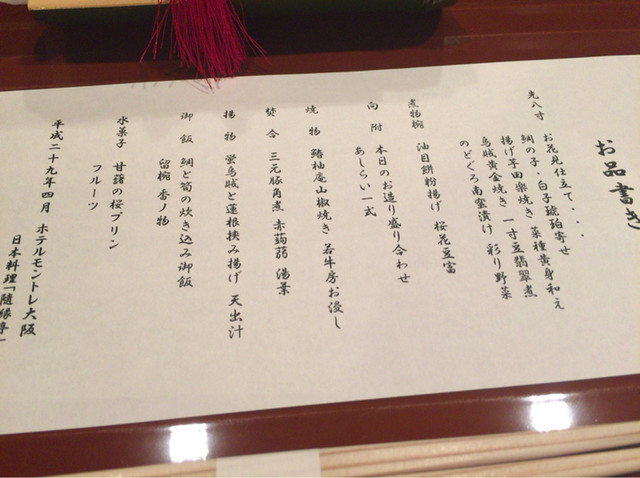 お品書き
先八寸 お花見仕立て・・・・
鯛の子・白子琥珀寄せ
鯛の子田楽焼き 菜種黄身和え
揚げ芋田楽焼き 一寸豆翡翠煮
烏賊黄金焼き 彩り野菜
のどぐろ南蛮漬け
煮物椀 油目餅粉揚げ 桜花豆富
向附 本日のお造り盛り合わせ
あしらい一式
焼物 鰆柚庵山椒焼き 若牛房お浸し
焚合 三元豚角煮 赤蒟蒻 湯葉
揚物 蛍烏賊と蓮根挟み揚げ 天出汁
御飯 鯛と筍の炊き込み御飯
留椀 香ノ物
水菓子 甘藷の桜プリン
フルーツ
平成二十九年四月 ホテルモントレ大阪
日本料理「隨縁亭」